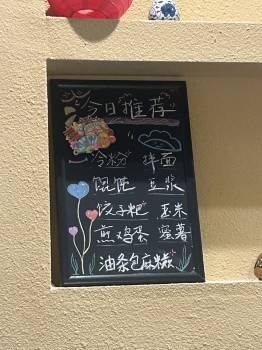 今日推荐
冷粉 拌面
馄饨 豆浆
饺子粑 玉米
煎鸡蛋 蜜薯
油条包麻糍